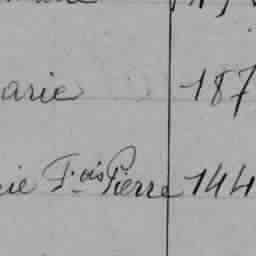 arie 187
ie F.ois Pierre 144